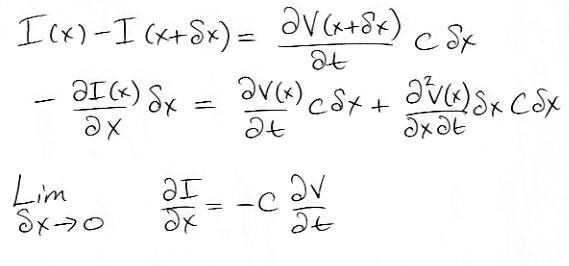 I(x) - I(x+δx) = ∂V(x+δx)/∂t C δx
- ∂I(x)/∂x δx = ∂V(x)/∂t C δx + ∂²V(x)/∂x∂t δx C δx
Lim δx→0 ∂I/∂x = -C ∂V/∂t